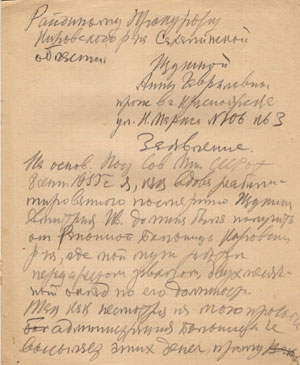 Районному Прокурору
Кировского р-на Сахалинской
области
Анны Гаврилевны
прож в г. Красноярске
ул. К. Маркса № 106
Заявление.
На основ. Пост Сов Мин СССР от
8 сент 1955 г я, как вдова реабили-
тированного посмертно
Дмитрия должна была получить
от Районной Больницы Кировск
р-на, где мой муж работал
перед арестом двухмесяч-
ный оклад по его должности
Так как несмотря на мою просьбу
администрация больницы не
высылает этих денег, прошу